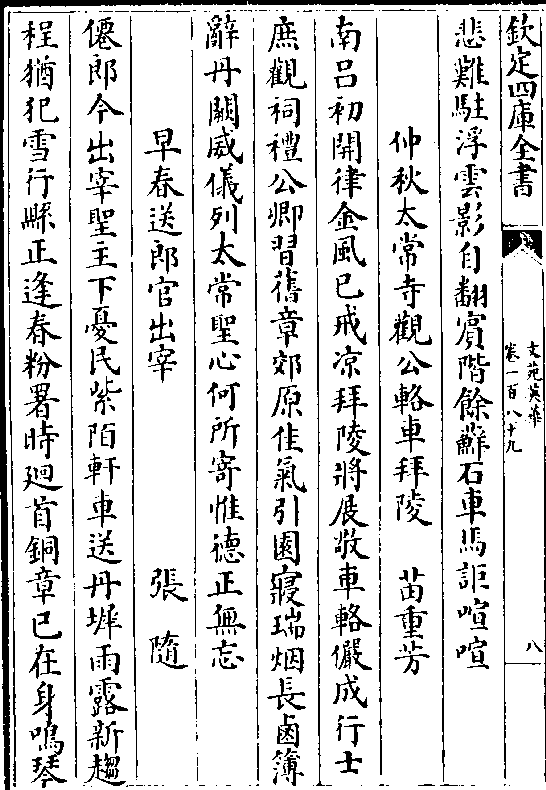 欽定四庫全書
文苑英華
卷一百八十九
八
悲難駐浮雲影自翻賓階餘蘚石車馬詎喧喧
仲秋太常寺觀公輅車拜陵 苗重芳
南呂初開律金風已戒凉拜陵將展敬車輅儼成行士
庶觀祠禮公卿習舊章郊原佳氣引園寢瑞烟長鹵簿
辭丹闕威儀列太常聖心何所寄惟德正無忘
早春送郎官出宰 張隨
僊郎今出宰聖主下憂民紫陌軒車送丹墀雨露新趨
程猶犯雪行縣正逢春粉署時廻首銅章已在身鳴琴